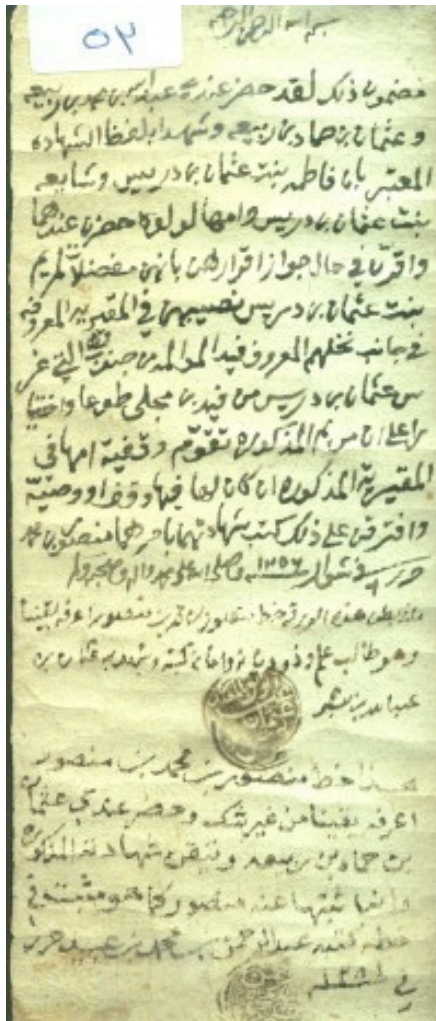 ٥٢
بسم الله الرحمن الرحيم
مضمون ذلك لقد حضر عندي عبدالله بن محمد بن ربيعه
وعثمان بن حماد بن ربيعه وشهدا بلفظ الشهاده
المعتبر بان فاطمه بنت عثمان بن دريس وشايعه
بنت عثمان بن دريس وامها لولوه حضرن عندهما
واقرن في حال جواز اقرارهن بانهن مفضلات لمريم
بنت عثمان بن دريس نصيبهن في المقيبريه المعروفه
في جانب نخلهم المعروف فيد التي غر
س عثمان بن دريس من فيد بن مجلي طوعا واختيا
را على ان مريم المذكوره تقوم وقفية امها في
المقيبرية المذكوره ان كان لها فيها وقف او وصية
وافترقن على ذلك كتب شهادتهما بامرهما منصور بن محمد
في شوال ١٢٥٦ وصلى الله على محمد واله وصحبه وسلم
هذه الورقه خط منصور بن محمد بن منصور اعرفه يقينا
وهو طالب علم وذو ديانه وامانه كتبه وشهد به عثمان بن
عبدالله بن بشر
هذا خط منصور بن محمد بن منصور
اعرفه يقينا من غير شك وحضر عندي عثمان
بن حماد بن ربيعه وتيقن شهادته المذكوره
وانها ثبتها عند منصور كما هو مثبت في
خطه كتبه عبدالرحمن بن محمد بن عبيد حرر
في